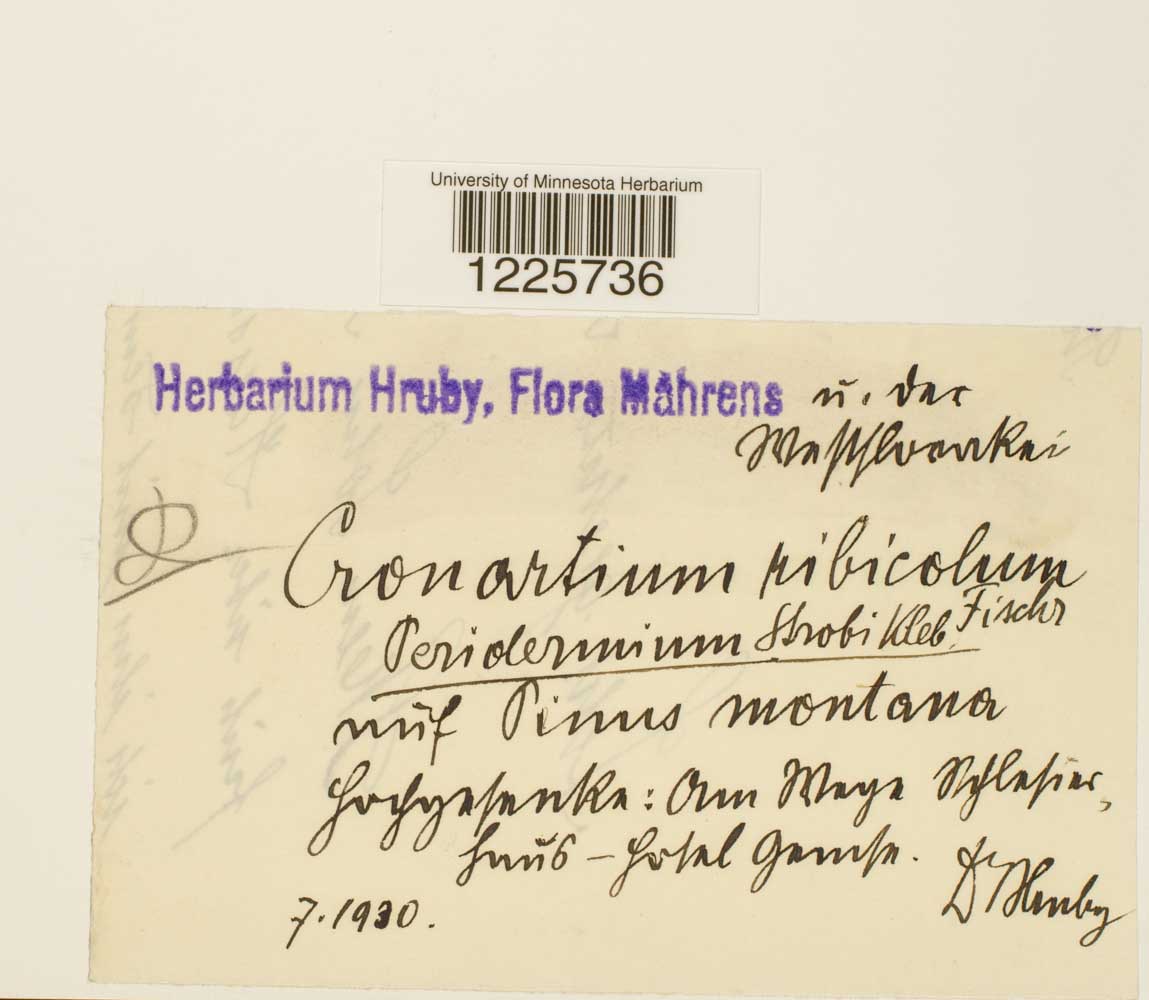 University of Minnesota Herbarium
1225736
Herbarium Hruby, Flora Mährens u. der
Westslovakei
Cronartium ribicolum
Peridermium Strobi Kleb. Fischr
auf Pinus montana
Hochgesenke: Am Wege Schlesier-
haus – Hotel Gemse.
Dr Hruby
7.1930.